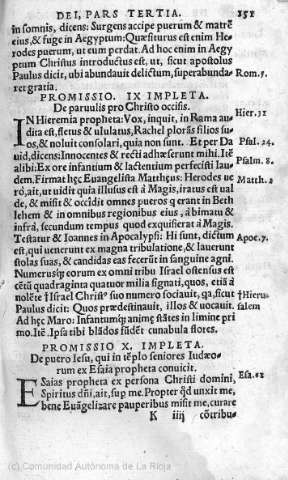 DEI, PARS TERTIA. 151
in somnis, dicens: Surgens accipe puerum & matrẽ
eius, & fuge in Aegyptum: Quæsiturus est enim He-
rodes puerum, ut eum perdat. Ad hoc enim in Aegy
ptum Christus introductus est, ut, sicut apostolus
Paulus dicit, ubi abundauit delictum, superabunda- Rom.5.
ret gratia.
PROMISSIO. IX IMPLETA.
De paruulis pro Christo occisis. Hier.31
IN Hieremia propheta: Vox, inquit, in Rama au-
dita est, fletus & ululatus, Rachel plorãs filios su-
os, & noluit consolari, quia non sunt. Et per Da Psal.24.
uid, dicens: Innocentes & recti adhæserunt mihi. Itẽ
alibi: Ex ore infantium & lactentium perfecisti lau- Psalm.8.
dem. Firmat hęc Euangelista Matthæus: Herodes ue
rò, ait, ut uidit quia illusus est à Magis, iratus est ual Matth.2
de, & misit & occidit omnes pueros q̃ erant in Beth
lehem & in omnibus regionibus eius, à bimatu &
infrà, secundum tempus quod exquisierat à Magis.
Testatur & Ioannes in Apocalypsi: Hi sunt, dictum Apoc.7.
est, qui uenerunt ex magna tribulatione, & lauerunt
stolas suas, & candidas eas fecerũt in sanguine agni.
Numerusq; eorum ex omni tribu Israel ostensus est
cẽtũ quadraginta quatuor milia signati, quos, etiã à
nolẽte †Israel Christ9 suo numero sociauit, qa, sicut †Hieru
Paulus dicit: Quos prædestinauit, illos & uocauit. salem
Ad hęc Maro: Infantumq; animę flẽtes in limine pri
mo. Itẽ. Ipsa tibi blãdos fũdẽt cunabula flores.
PROMISSIO X. IMPLETA.
De puero Iesu, qui in tẽplo seniores Iudæo-
rum ex Esaia propheta conuicit.
ESaias propheta ex persona Christi domini, Esa.61
Spiritus dñi, ait, sup me. Propter qđ unxit me,
bene Euãgelizare pauperibus misit me, curare
K iiij cõtribu-
(c) Comunidad Autónoma de La Rioja